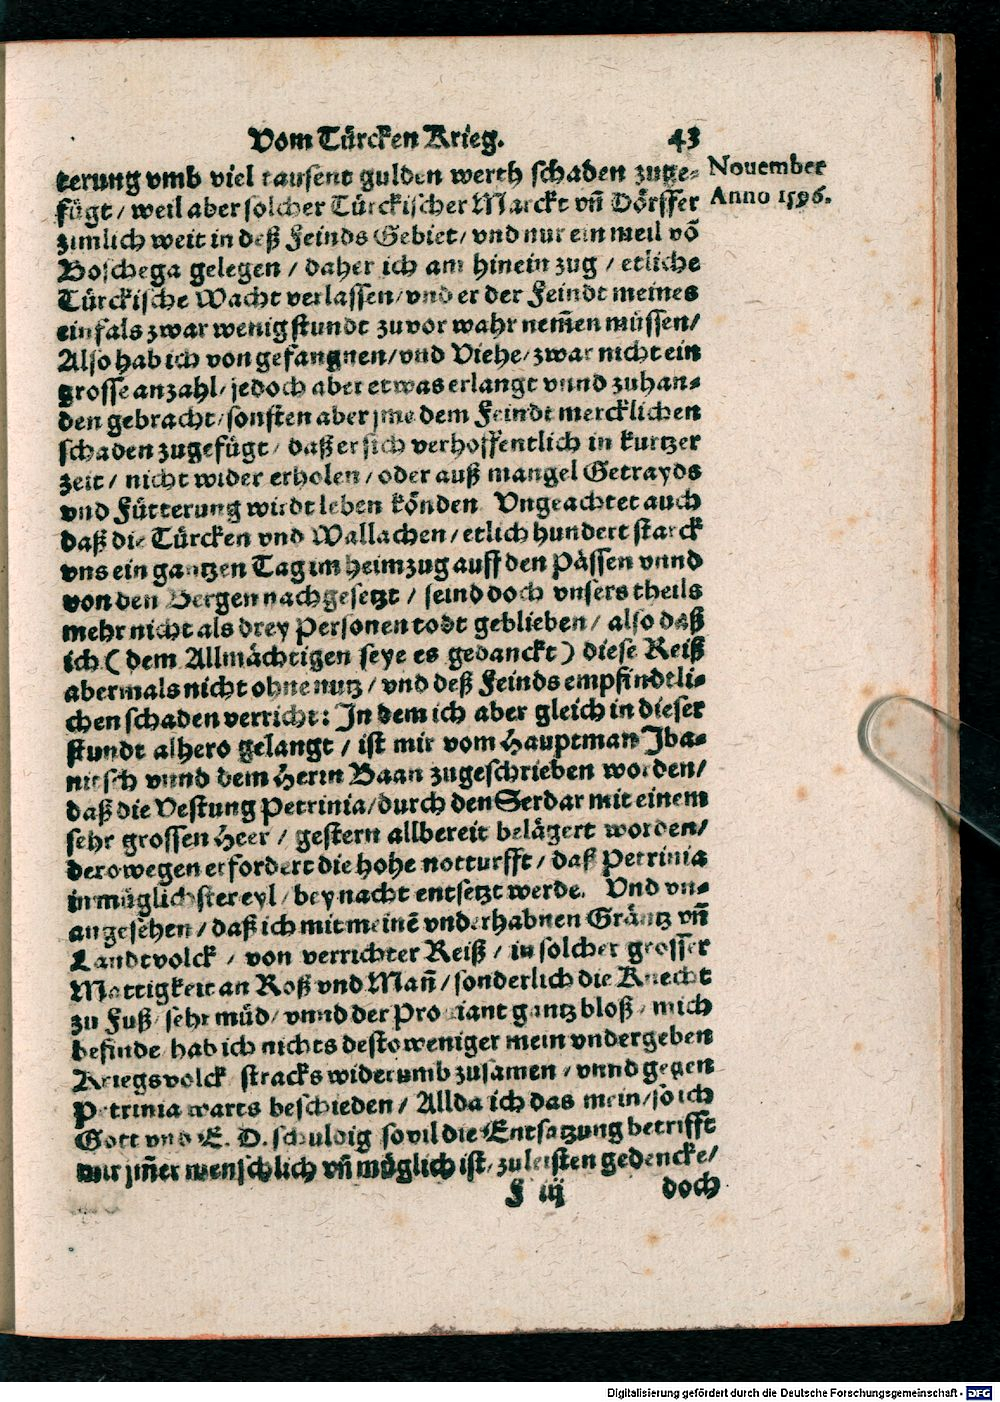 Vom Türcken Krieg. 43
November
Anno 1596.
terung vmb viel tausent gulden werth schaden zuge-
fügt / weil aber solcher Türckischer Marckt vñ Dörffer
zimlich weit in deß Feinds Gebiet / vnd nur ein meil võ
Boschega gelegen / daher ich am hinein zug / etliche
Türckische Wacht verlassen / vnd er der Feindt meines
einfals zwar wenig stundt zuvor wahr nem̃en müssen /
Also hab ich von gefangnen / vnd Viehe / zwar nicht ein
grosse anzahl / jedoch aber etwas erlangt vnnd zuhan-
den gebracht / sonsten aber jme dem Feindt mercklichen
schaden zugefügt / daß er sich verhoffentlich in kurtzer
zeit / nicht wider erholen / oder auß mangel Getrayds
vnd Fütterung wirdt leben könden Vngeachtet auch
daß die Türcken vnd Wallachen / etlich hundert starck
vns ein gantzen Tag im heimzug auff den Pässen vnnd
von den Bergen nachgesetzt / seind doch vnsers theils
mehr nicht als drey Personen todt geblieben / also daß
ich ( dem Allmächtigen seye es gedanckt ) diese Reiß
abermals nicht ohne nutz / vnd deß Feinds empfindtli-
chen schaden verricht: In dem ich aber gleich in dieser
stundt alhero gelangt / ist mir vom Hauptman Iba-
nitsch vnnd dem Herrn Baan zugeschrieben worden /
daß die Vestung Petrinia / durch den Serdar mit einem
sehr grossen Heer / gestern allbereit belägert worden /
derowegen erfordert die hohe notturfft / daß Petrinia
in müglichster eyl / bey nacht entsetzt werde. Vnd vn-
angesehen / daß ich mit meinẽ vnderhabnen Gräntz vñ
Landtvolck / von verrichter Reiß / in solcher grosser
Mattigkeit an Roß vnd Mañ / sonderlich die Knecht
zu Fuß / sehr müd / vnnd der Proviant gantz bloß / mich
befinde / hab ich nichts destoweniger mein vndergeben
Kriegsvolck stracks widerumb zusamen / vnnd gegen
Petrinia warts beschieden / Allda ich das mein / so ich
Gott vnd E. D. schuldig so vil die Entsatzung betrifft
mir jm̃er menschlich vñ müglich ist / zu leisten gedencke /
F iij doch
Digitalisierung gefördert durch die Deutsche Forschungsgemeinschaft - DFG